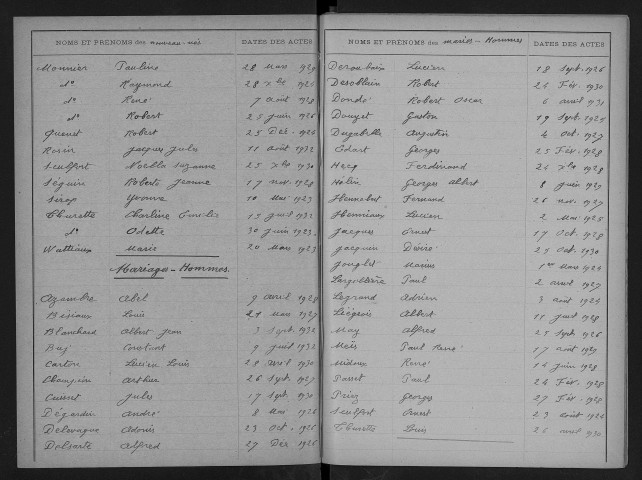 NOMS ET PRÉNOMS des nouveau-nés DATES DES ACTES
Monnier Pauline 28 Mars 1929
do Raymond 28 Xbre
do René 7 août 1928
do Robert 25 juin 1926
Robert 25 Déc. 1926
Rosin Jacques Jules 11 août 1932
Sculfort Noëlla Suzanne 25 Xbre 1930
Séguin Roberte Jeanne 17 nov. 1928
Yvonne 10 Mai 1923
Thurette Charline 15 1932
do Odette 30 juin 1923
Wattiaux Marie 20 Mars 1923
Mariages - Hommes.
Azambre Abel 9 avril 1928
Louis 21 Mars 1927
Blanchard Albert Jean 3 Sept. 1932
Constant 9 1932
Carton Lucien Louis 1930
Arthur 26 Sept. 1927
Jules 17 Sept. 1930
Dégardin André 8 Mai 1926
Delevaque Adonis 23 Oct. 1926
Delsarte Alfred 27 Déc 1926
NOMS ET PRÉNOMS des mariés - Hommes DATES DES ACTES
Deroubaix Lucien 18 Sept. 1926
Robert 24 Fév. 1930
Dondé Robert Oscar 6 avril
Douyet Gaston 19 Sept.
Augustin 4 Oct. 1927
Georges 25 Fév. 1928
Hecq Ferdinand 24 Xbre 1928
Hélin Georges Albert 8 juin 1929
Hennebert Fernand 26 nov. 1927
Henniaux Lucien 2 Mai 1925
Jacques Ernest 17 Oct. 1928
Jacquin Désiré 25 Oct. 1930
Jouglet Marius 1er Mars 1924
Paul 2 avril 1927
Legrand Adrien 3 août 1924
Liégeois Albert 11 1928
May Alfred 25 Sept 1926
Paul René 17 août 1929
Midoux René 14 juin 1928
Passet Paul 24 Fév. 1928
Georges 27 Fév. 1928
Sculfort Ernest 23 août 1924
Thurette Louis 26 avril 1930